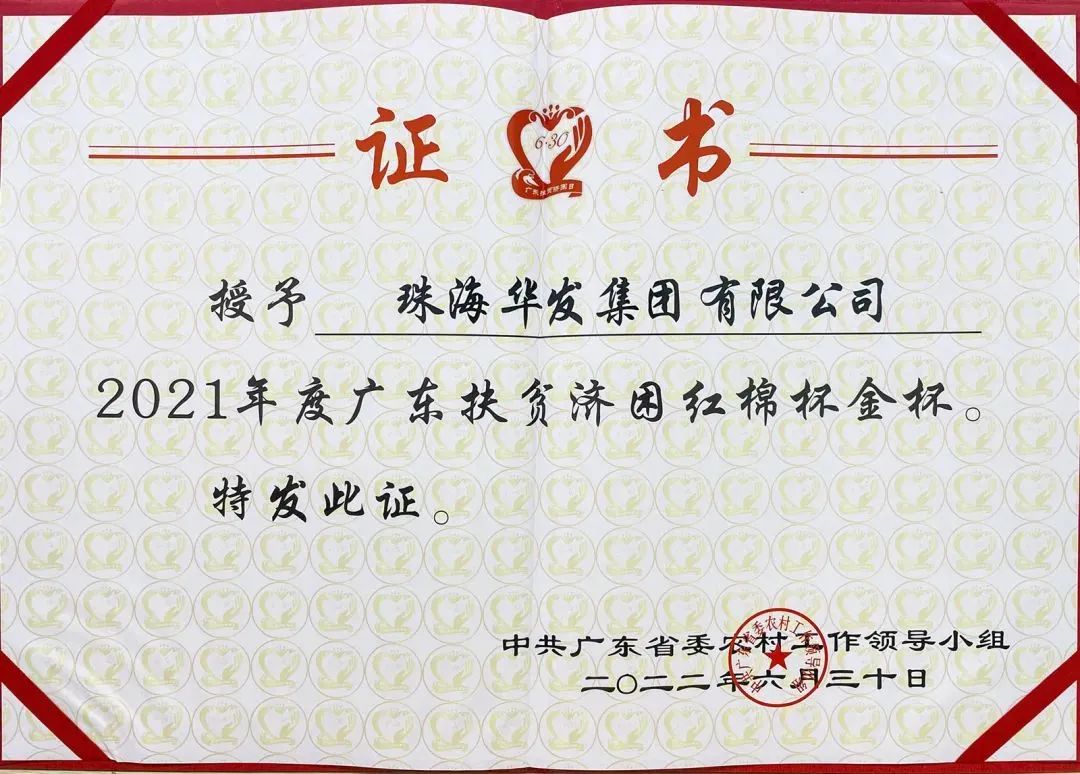 证书
6·30
广东扶贫济困日
授予 珠海华发集团有限公司
2021年度广东扶贫济困红棉杯金杯。
特发此证。
中共广东省委农村工作领导小组
二〇二二年六月三十日
中共广东省委农村工作领导小组